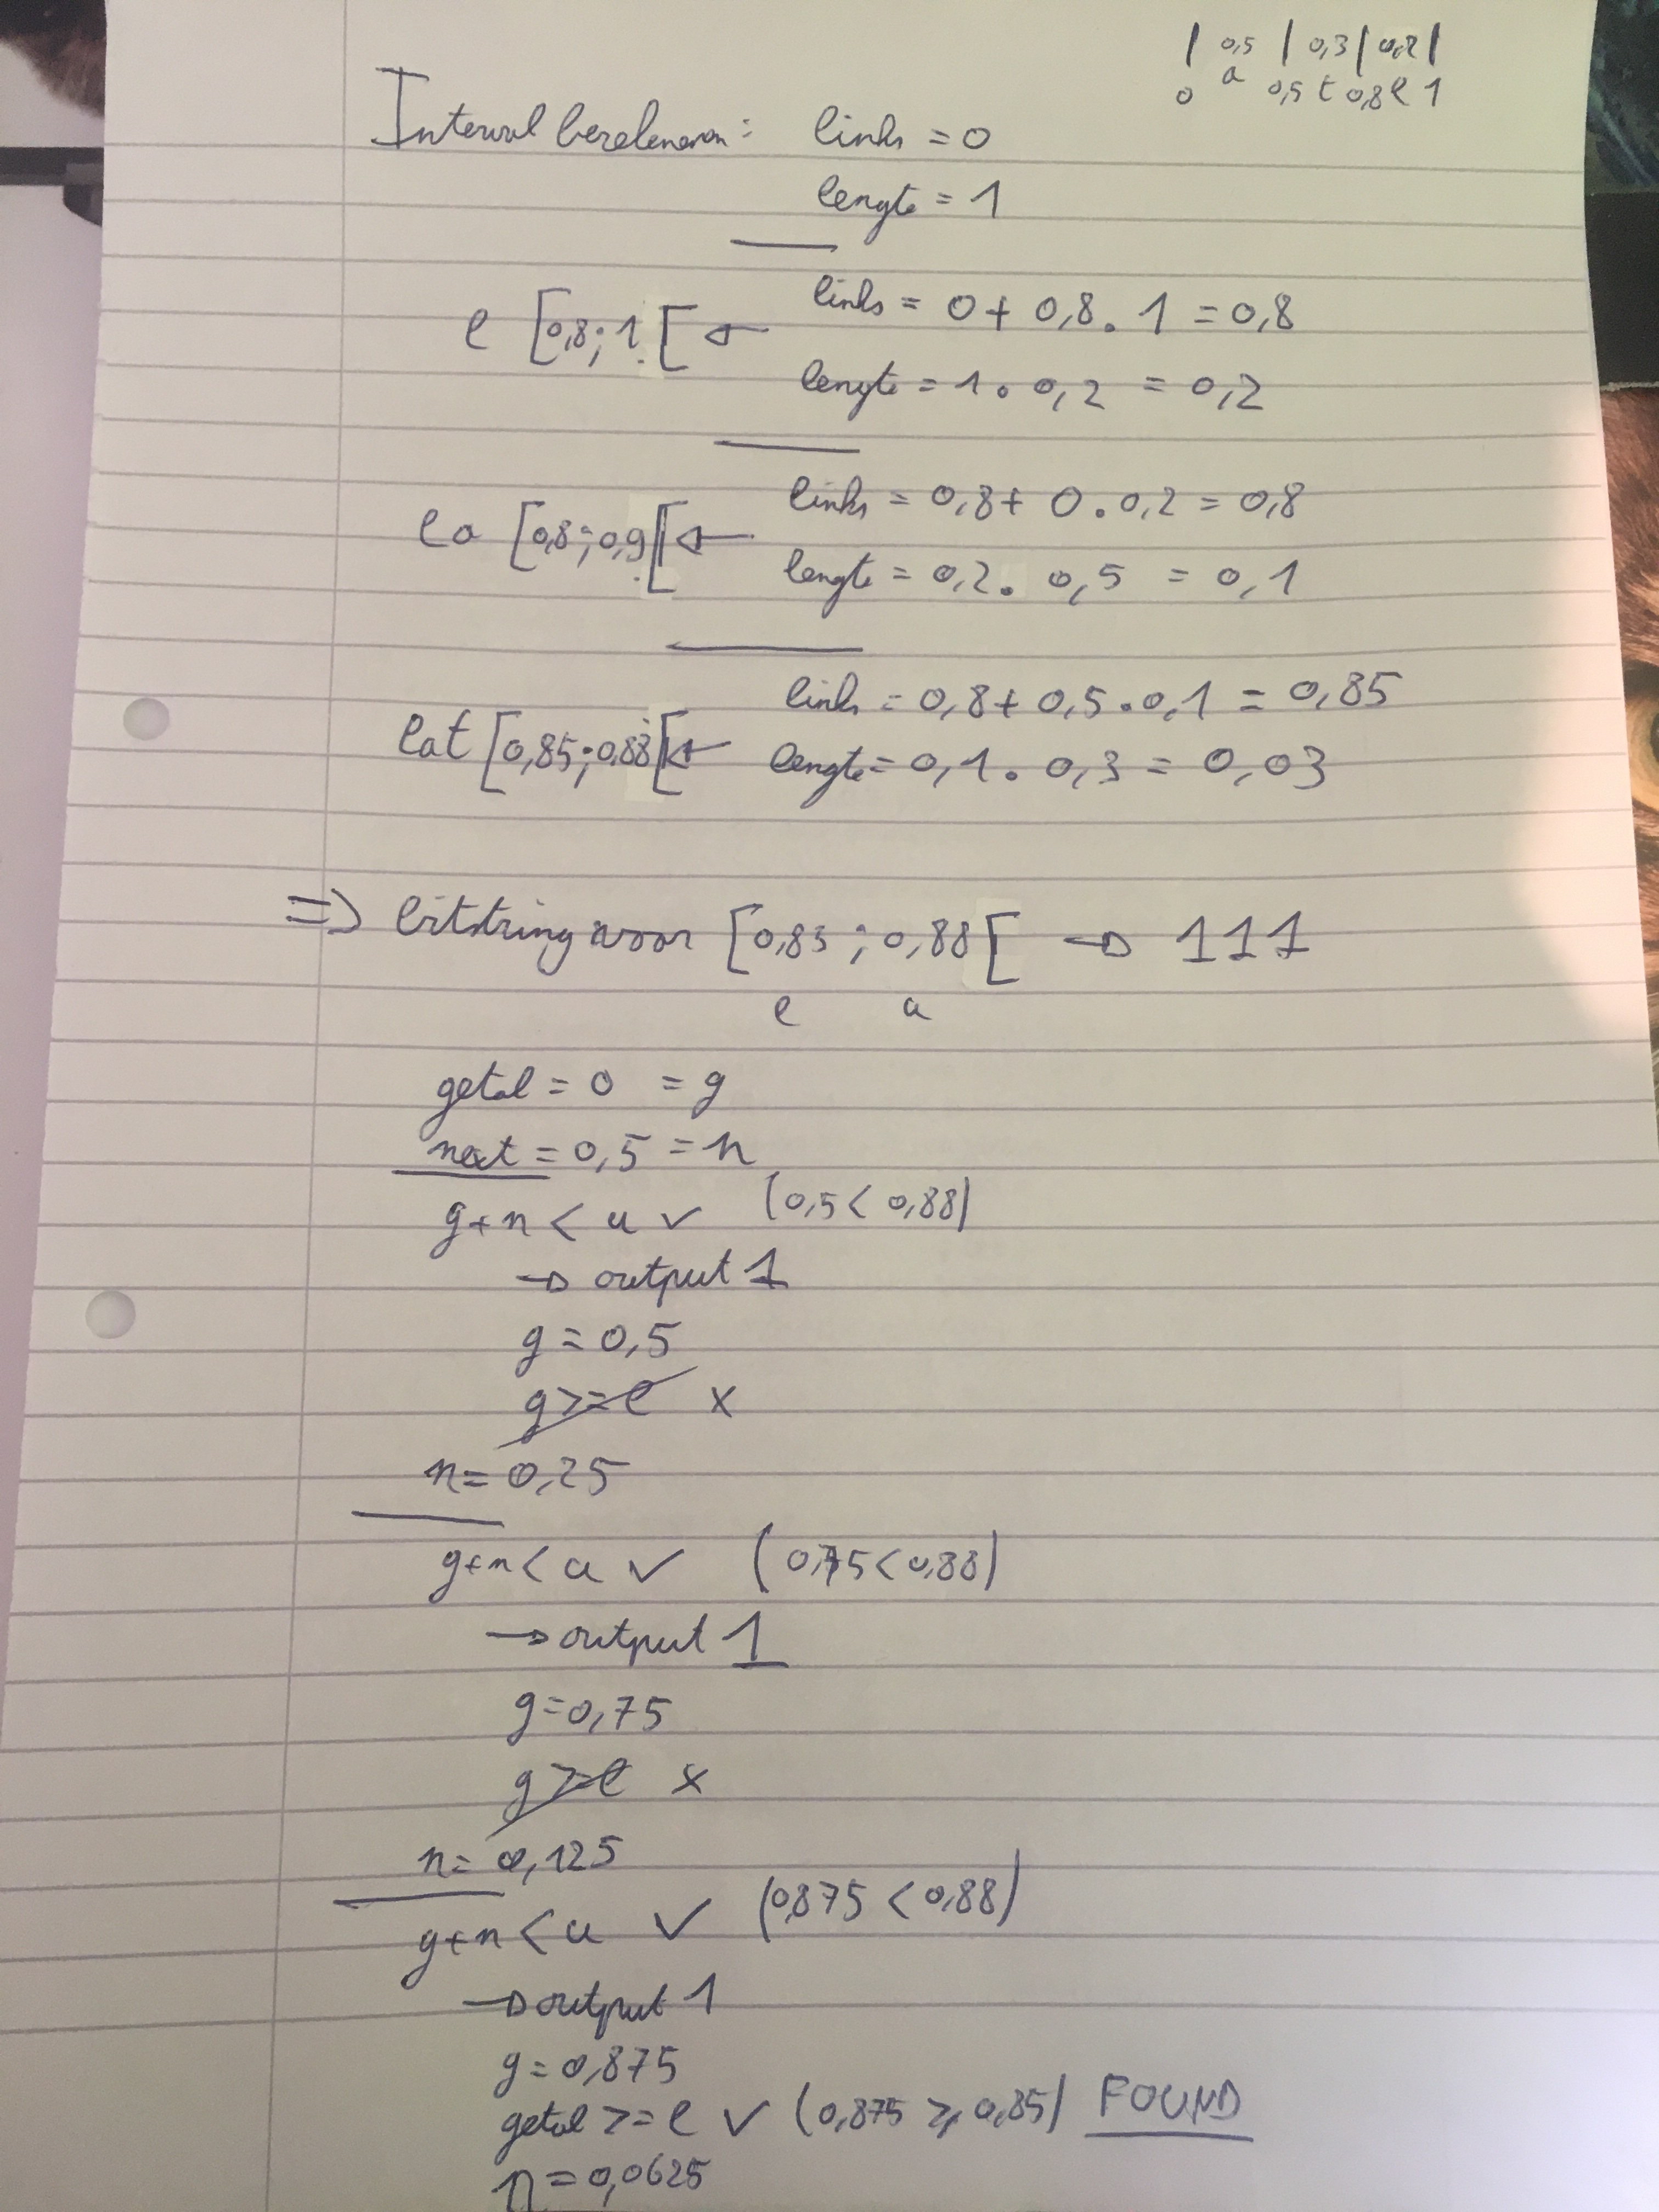 | 0,5 | 0,3 | 0,2 |
0 a 0,5 t 0,8 e 1
Interval berekenen: links = 0
lengte = 1
links = 0 + 0,8 . 1 = 0,8
e [0,8 ; 1 [ ←
lengte = 1 . 0,2 = 0,2
links = 0,8 + 0 . 0,2 = 0,8
ea [0,8 ; 0,9 [ ←
lengte = 0,2 . 0,5 = 0,1
links = 0,8 + 0,5 . 0,1 = 0,85
eat [0,85 ; 0,88 [ ←
lengte = 0,1 . 0,3 = 0,03
=> bitstring voor [0,85 ; 0,88 [ → 111
l u
getal = 0 = g
next = 0,5 = n
g+n < u ✓ (0,5 < 0,88)
→ output 1
g = 0,5
g >= l x
n = 0,25
g+n < u ✓ (0,75 < 0,88)
→ output 1
g = 0,75
g >= l x
n = 0,125
g+n < u ✓ (0,875 < 0,88)
→ output 1
g = 0,875
getal >= l ✓ (0,875 ≥ 0,85) FOUND
n = 0,0625